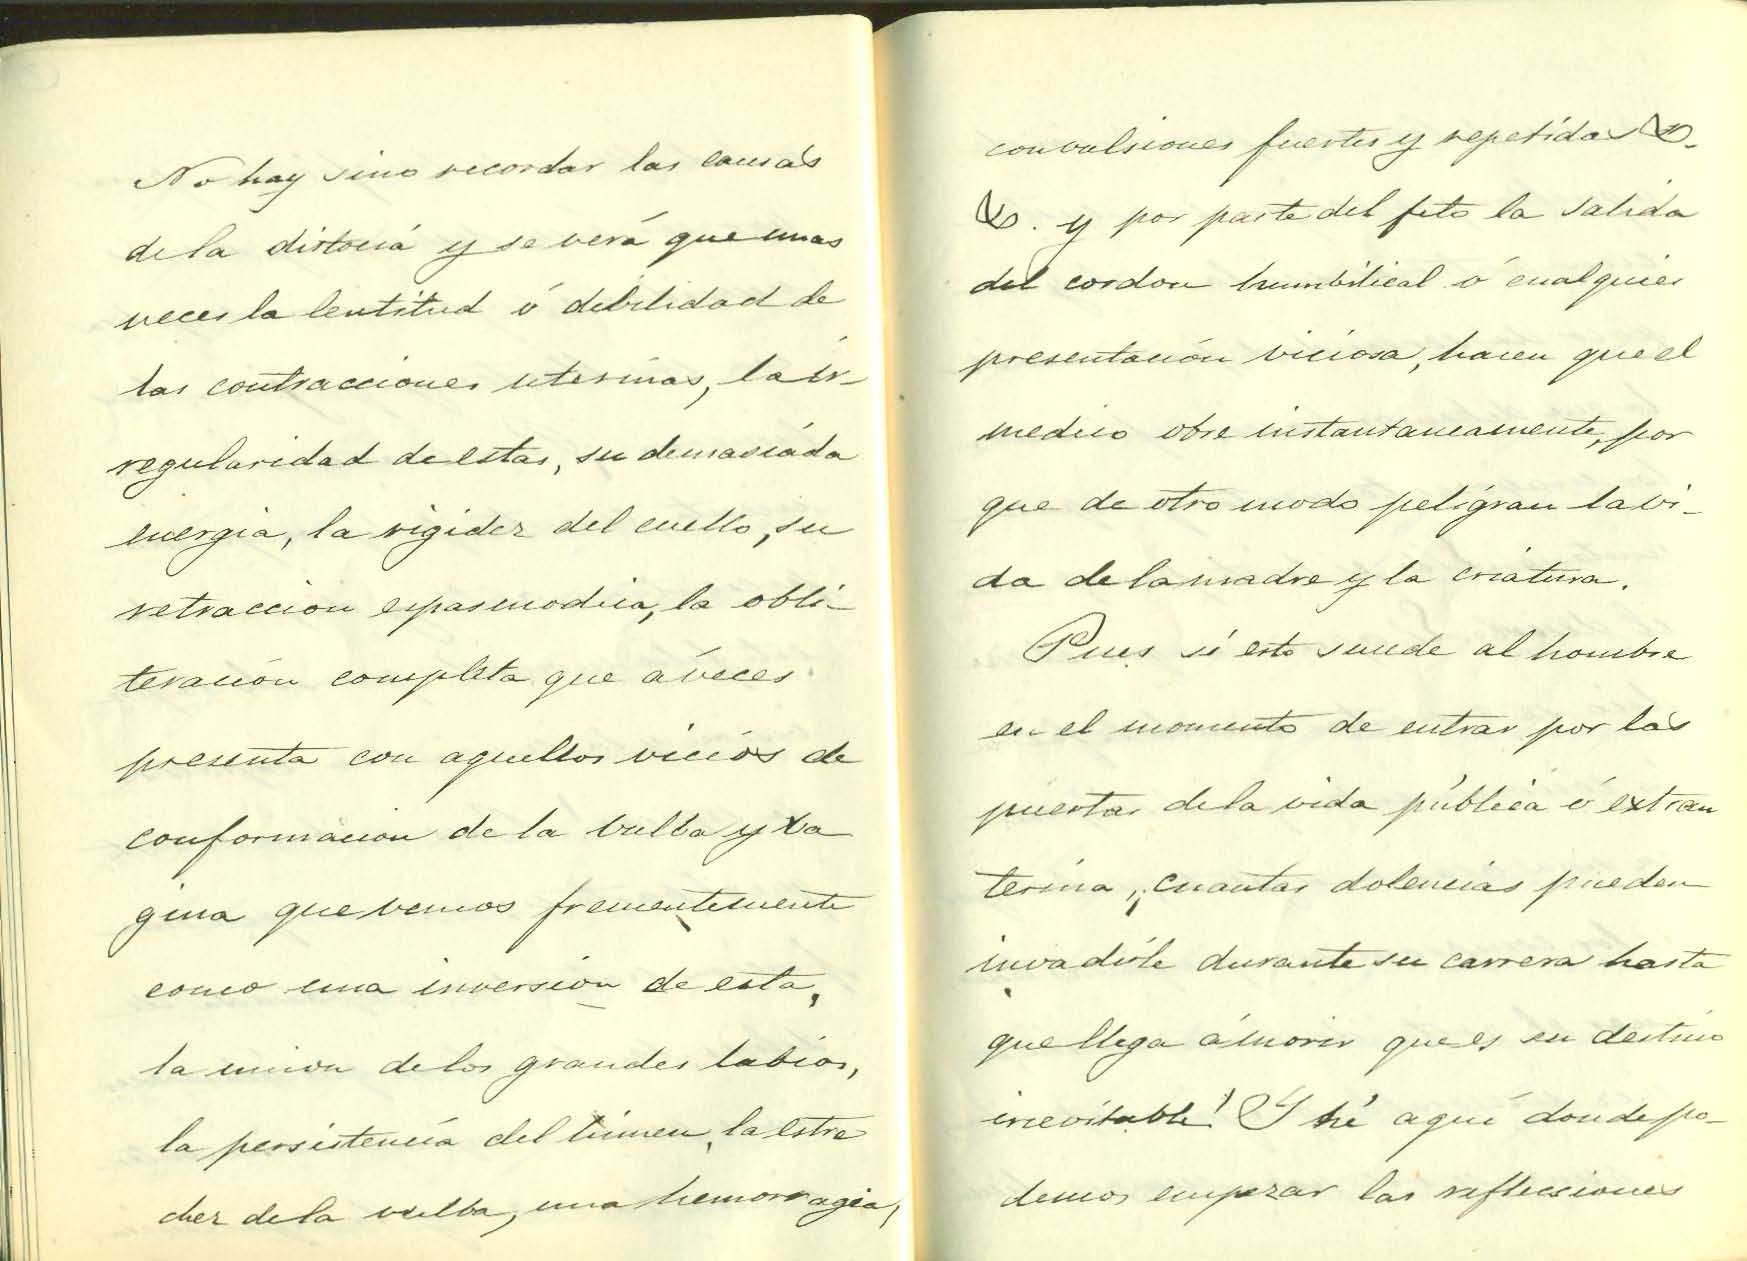 No hay sino recordar las causas
de la distocia y se verá que unas
veces la lentitud ó debilidad de
las contracciones uterinas, la ir-
regularidad de estas, su demasiada
energia, la rigidez del cuello, su
retraccion espasmodica, la obli-
teración completa que á veces
presenta con aquellos vicios de
conformacion de la bulba y va
gina que vemos frementemente
como una inversion de esta,
la union de los grandes labios,
la persistencia del himen, la estre
chez de la vulba, una hemorragia,
convulsiones fuertes y repetidas &.
&. y por parte del feto la salida
del cordon humbilical ó cualquier
presentación viciosa, hacen que el
medico obre instantaneamente, por
que de otro modo peligran la vi-
da de la madre y la criatura.
Pues si esto sucede al hombre
en el momento de entrar por las
puertas de la vida pública ó extrau
terina, ¡cuantas dolencias pueden
invadirle durante su carrera hasta
que llega á morir que es su destino
inevitable! Y hé aquí donde po-
demos empezar las reflecciones